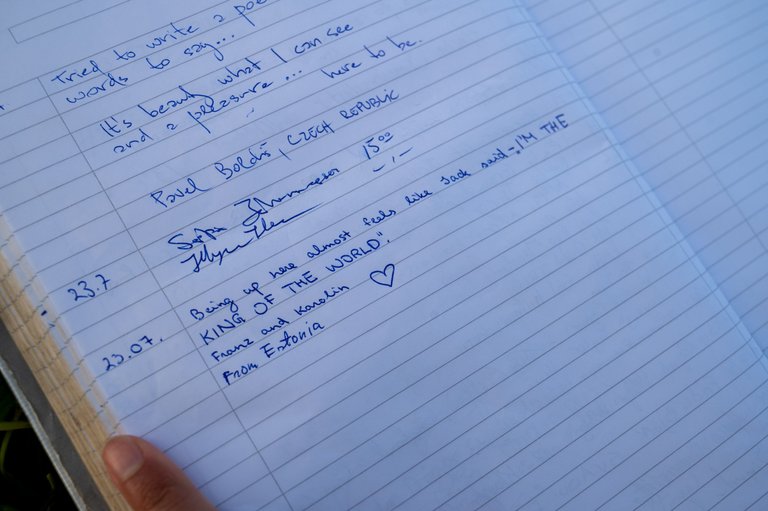 Tried to write a poe
words to say...
It's beauty what I can see
and a pleasure ... here to be.
Pavel Boldiš, CZECH REPUBLIC
23.7 15:00
-,-
23.07. Being up here almost feels like Jack said - „I'M THE
KING OF THE WORLD".
Franz and Karolin ♡
From Estonia